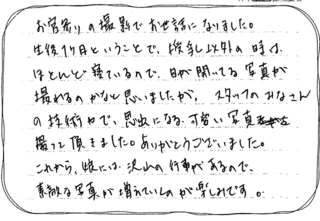 お宮参りの撮影でお世話になりました。
生後77日ということで、授乳以外の時は、
ほとんど寝ているので、目が開いてる写真が
撮れるのかなと思いましたが、スタッフのみなさん
の技術力で、思出になる、可愛い写真を
撮って頂きました。ありがとうございました。
これから、娘には、沢山の行事があるので、
素敵な写真が増えていくのが楽しみです。